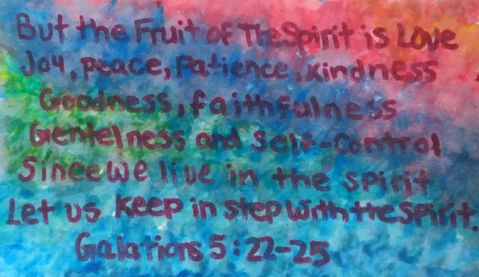 But the Fruit of The Spirit is Love
Joy, peace, Patience, kindness
Goodness, faithfulness
Gentelness and Self-control
Since we live in the spirit
Let us keep in step with the spirit.
Galations 5:22-25